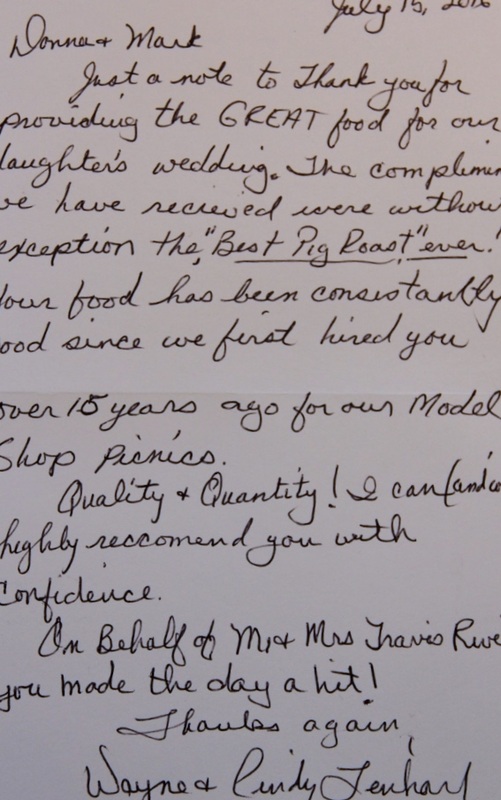 July 15, 2016
Donna & Mark
Just a note to Thank you for
providing the GREAT food for our
daughter's wedding. The complimen
we have recieved were withou
exception the, "Best Pig Roast" ever!
Your food has been consistantly
ood since we first hired you
over 15 years ago for our Model
Shop Picnics.
Quality & Quantity! I can (and
highly reccomend you with
Confidence.
On Behalf of Mr & Mrs Travis
you made the day a hit!
Thanks again,
Wayne & Cindy